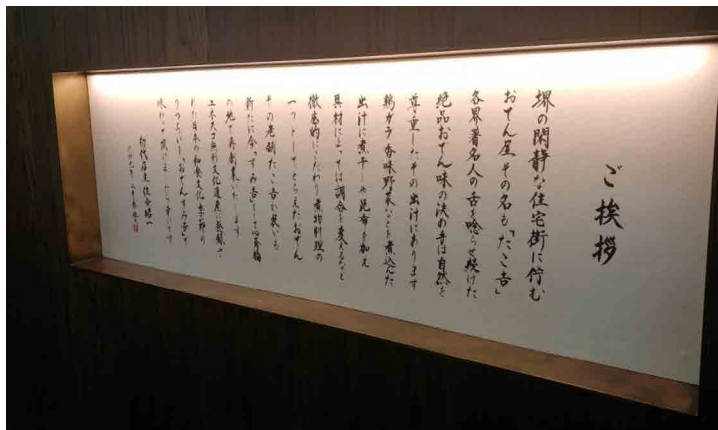 ご挨拶
堺の閑静な住宅街に佇む
おでん屋その名も「たこ吉」
各界著名人の舌を唸らせ続けた
絶品おでん味の決め手は自然を
尊重したその出汁にあります
鶏ガラ香味野菜などを煮込んだ
出汁に煮干しや昆布を加え
具材によっては調合を変えるなど
徹底的にこだわり煮物料理の
一つとしてとらえたおでん
その老舗たこ吉が装いも
新たに今「すみ吉」として心斎橋
の地で再創業いたします
ユネスコ無形文化遺産に登録さ
れた日本の和食文化季節の
うつろいと「おでんすみ吉」を
味わって頂けましたら幸いです
初代店主